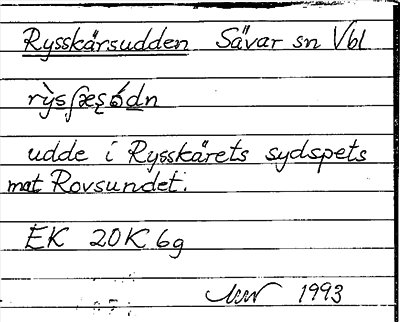 Rysskärsudden Sävar sn Vbl
udde i Rysskärets sydspets
mot Rovsundet.
EK 20K 6g
1993